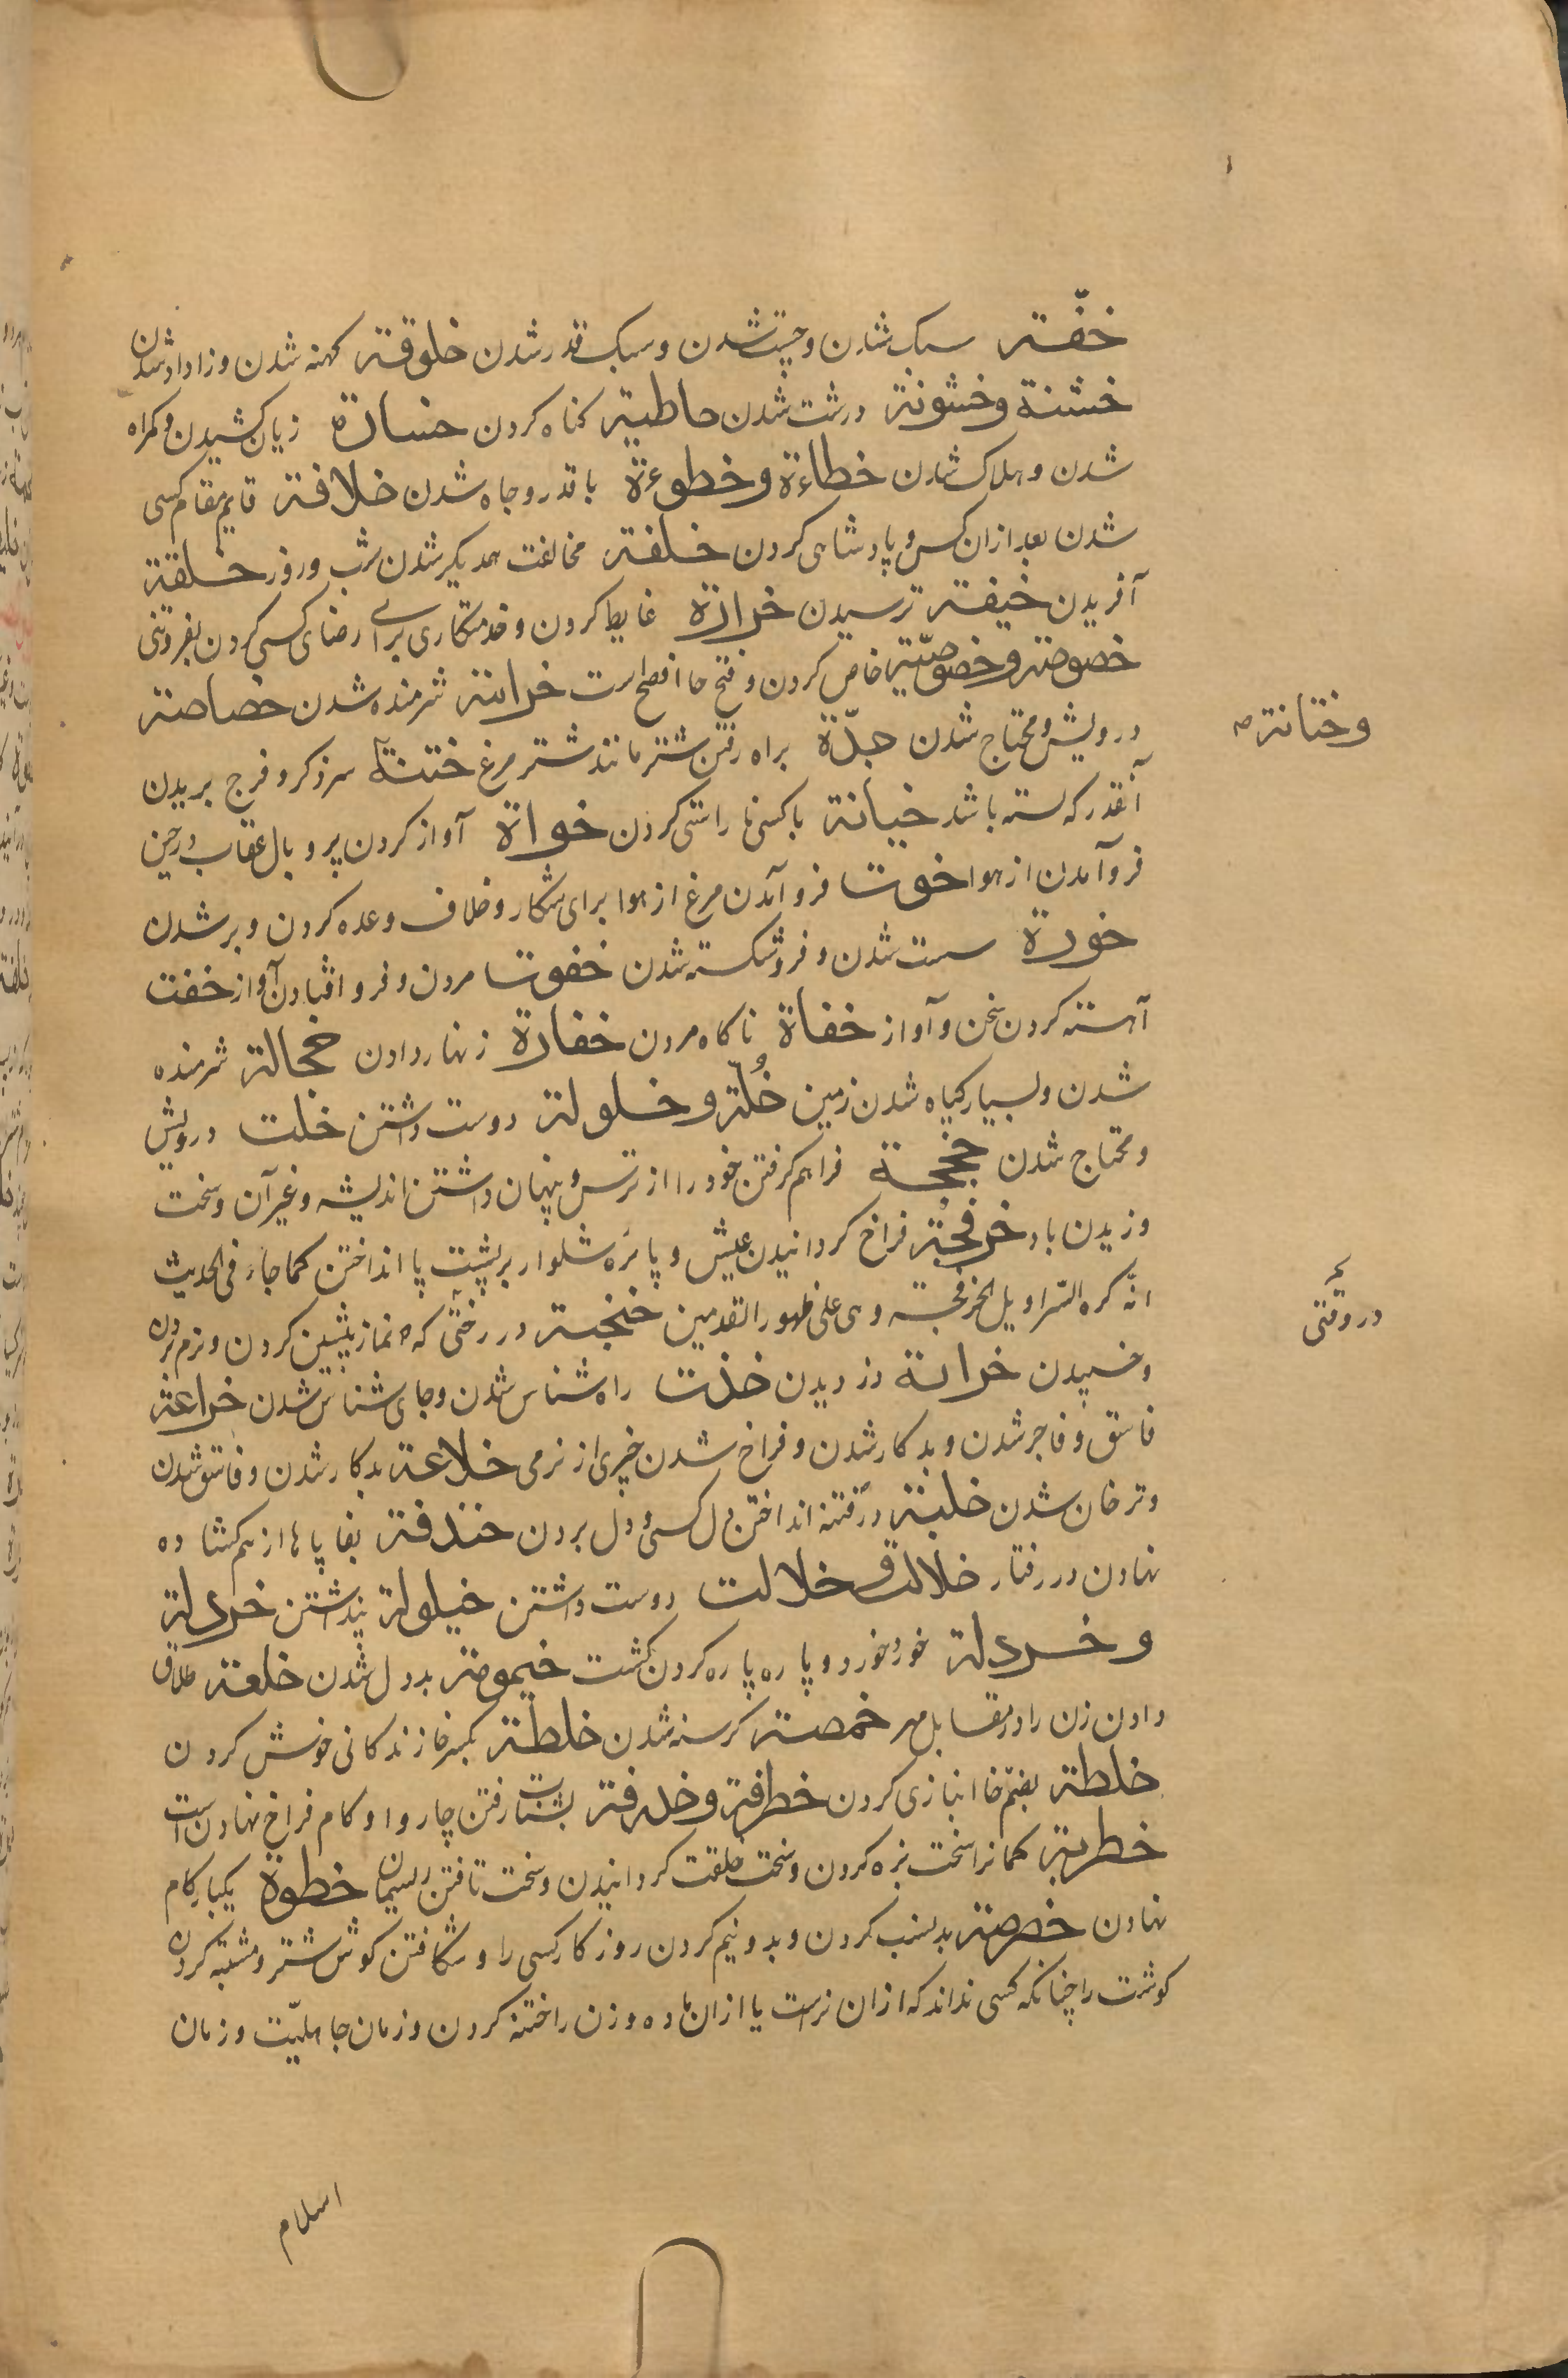 خفّة سبک شدن و چست شدن و سبک قدر شدن خلوقة کهنه شدن و زاد او شدن
خشنة و خشونة درشت شدن خاطیة کناه کردن خسارة زیان کشیدن و کمراه
شدن و هلاک شدن خطاءة و خطوءة با قدر و جاه شدن خلافة قایم مقام کسی
شدن بعد ازان کس و پادشاهی کردن خلفة مخالفت همدیکر شدن شب و روز خلقة
آفریدن خیفة ترسیدن خراءة غایط کردن و خدمتکاری برای رضای کسی کردن بفروتنی
خصوصة و خصوصیّة خاص کردن و فتح خا افصح است خزایة شرمنده شدن خصاصة
درویش و محتاج شدن خدّة براه رفتن شتر مانند شتر مرغ ختنة سر ذکر و فرج بریدن
وختانة صح
آنقدر که بسته باشد خیانة با کسی ناراستی کردن خواة آواز کردن پر و بال عقاب در حین
فرو آمدن از هوا خوت فرو آمدن مرغ از هوا برای شکار و خلاف وعده کردن و بر شدن
خورة سست شدن و فرو شکسته شدن خفوت مردن و فرو افتادن آواز خفت
آهسته کردن سخن و آواز خفاة ناکاه مردن خفارة زنهار دادن خجالة شرمنده
شدن و بسیار کیاه شدن زمین خُلّة و خلولة دوست داشتن خلت درویش
و محتاج شدن خجخجة فراهم کرفتن خود را از ترس و پنهان داشتن اندیشه و غیر آن و سخت
وزیدن باد خرفجة فراخ کردانیدن عیش و پائزه شلوار بر پشت پا انداختن کما جاء فی الحدیث
انّه کره السّراویل الخرفجة و هی علی ظهور القدمین خنجبة در رختی که نماز پیشین کردن و نرم نرم
در وقتی
و خسپیدن خرابة دزدیدن خذت راه شناس شدن و جای شناس شدن خراعة
فاسق و فاجر شدن و بدکار شدن و فراخ شدن چیزی از نرمی خلاعة بدکار شدن و فاسق شدن
و ترخان شدن خلبة در فتنه انداختن دل کسی و دل بردن خندفة بغا پاها از هم کشاده
نهادن در رفتار خلالة و خلالت دوست داشتن خیلولة پنداشتن خردلة
و خردلة خورد خورد و پاره پاره کردن کشت خیموصة بددل شدن خلعة طلاق
دادن زن را در مقابل مهر خمصة کرسنه شدن خلطة بکسر خا زندکانی خوش کردن
خلطة بضمّ خا انبازی کردن خطرفة و خدرفة بشتاب رفتن چاروا و کام فراخ نهادن است
خطربة کمانرا سخت بزه کردن و سخت خلقت کردانیدن و سخت تافتن ریسمان خطوة یکبار کام
نهادن خضرمة بد نسب کردن و بدو نیم کردن روزکار کسی را و شکافتن کوش شتر و مشتبه کردن
کوشت را چنانکه کسی نداند که ازان نر است یا ازان ماده و زن را ختنه کردن و زمان جاهلیّت و زمان
اسلام